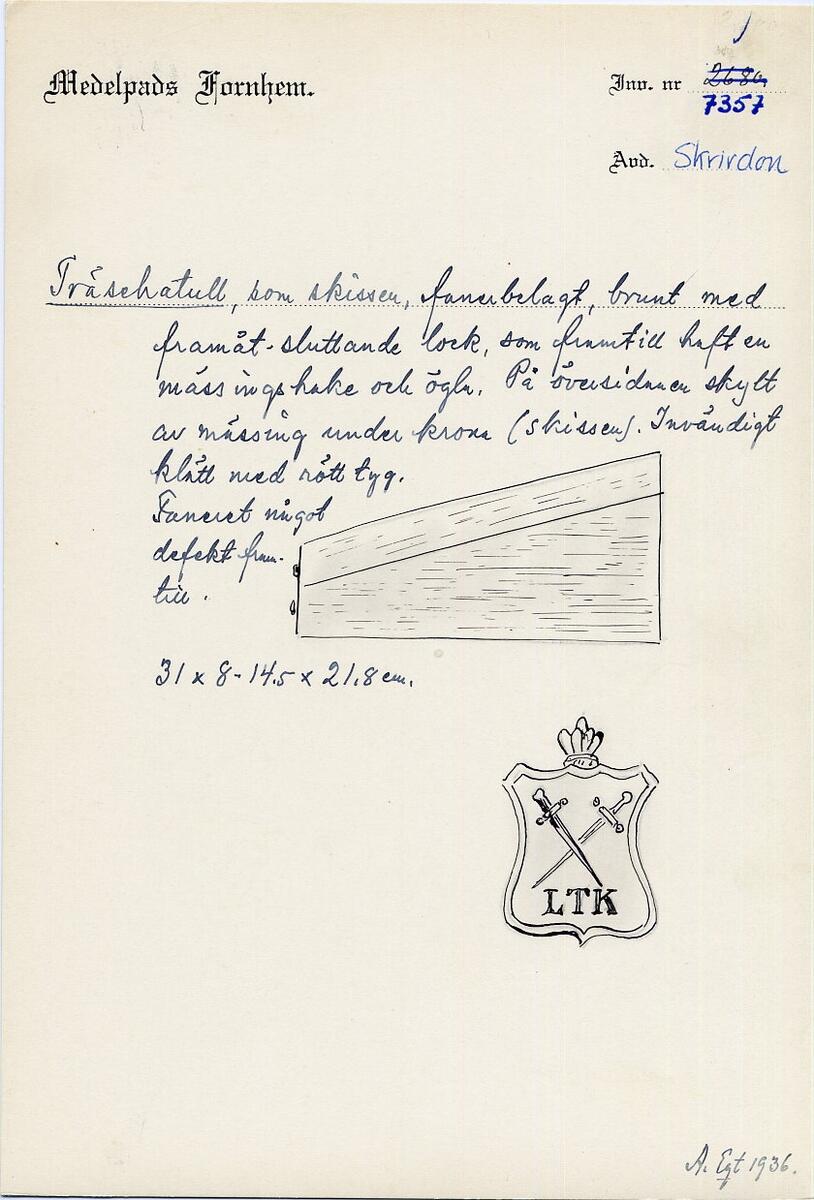 Medelpads Fornhem.
Inv. nr 2680.
7357
Avd. Skrivdon
Träschatull, som skissen, fanerbelagt, brunt med
framåt-sluttande lock, som framtill haft en
mässingshake och ögla. På översidan en skylt
av mässing under krona (skissen). Invändigt
klätt med rött tyg.
Faneret något
defekt fram-
till.
31 x 8-14.5 x 21.8 cm.
LTK
A. Egt 1936.